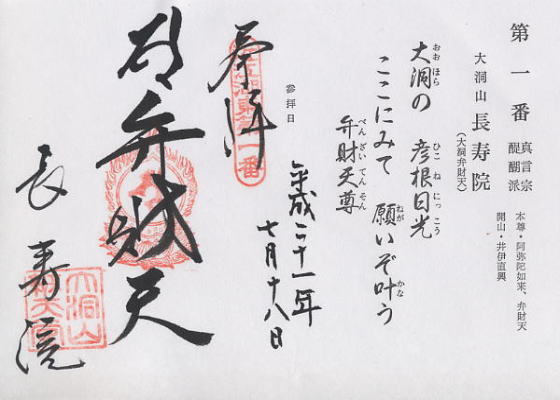 第一番 真言宗 醍醐派
本尊・阿弥陀如来、弁財天
開山・井伊直興
大洞山 長寿院
(大洞弁財天)
大洞の 彦根日光
おおほら ひこねにっこう
ここにみて 願いぞ叶う
ねが かな
弁財天尊
べんざいてんそん
参拝日
平成二十一年
七月十八日
奉拝
第一番
弁財天
大洞山
長寿院